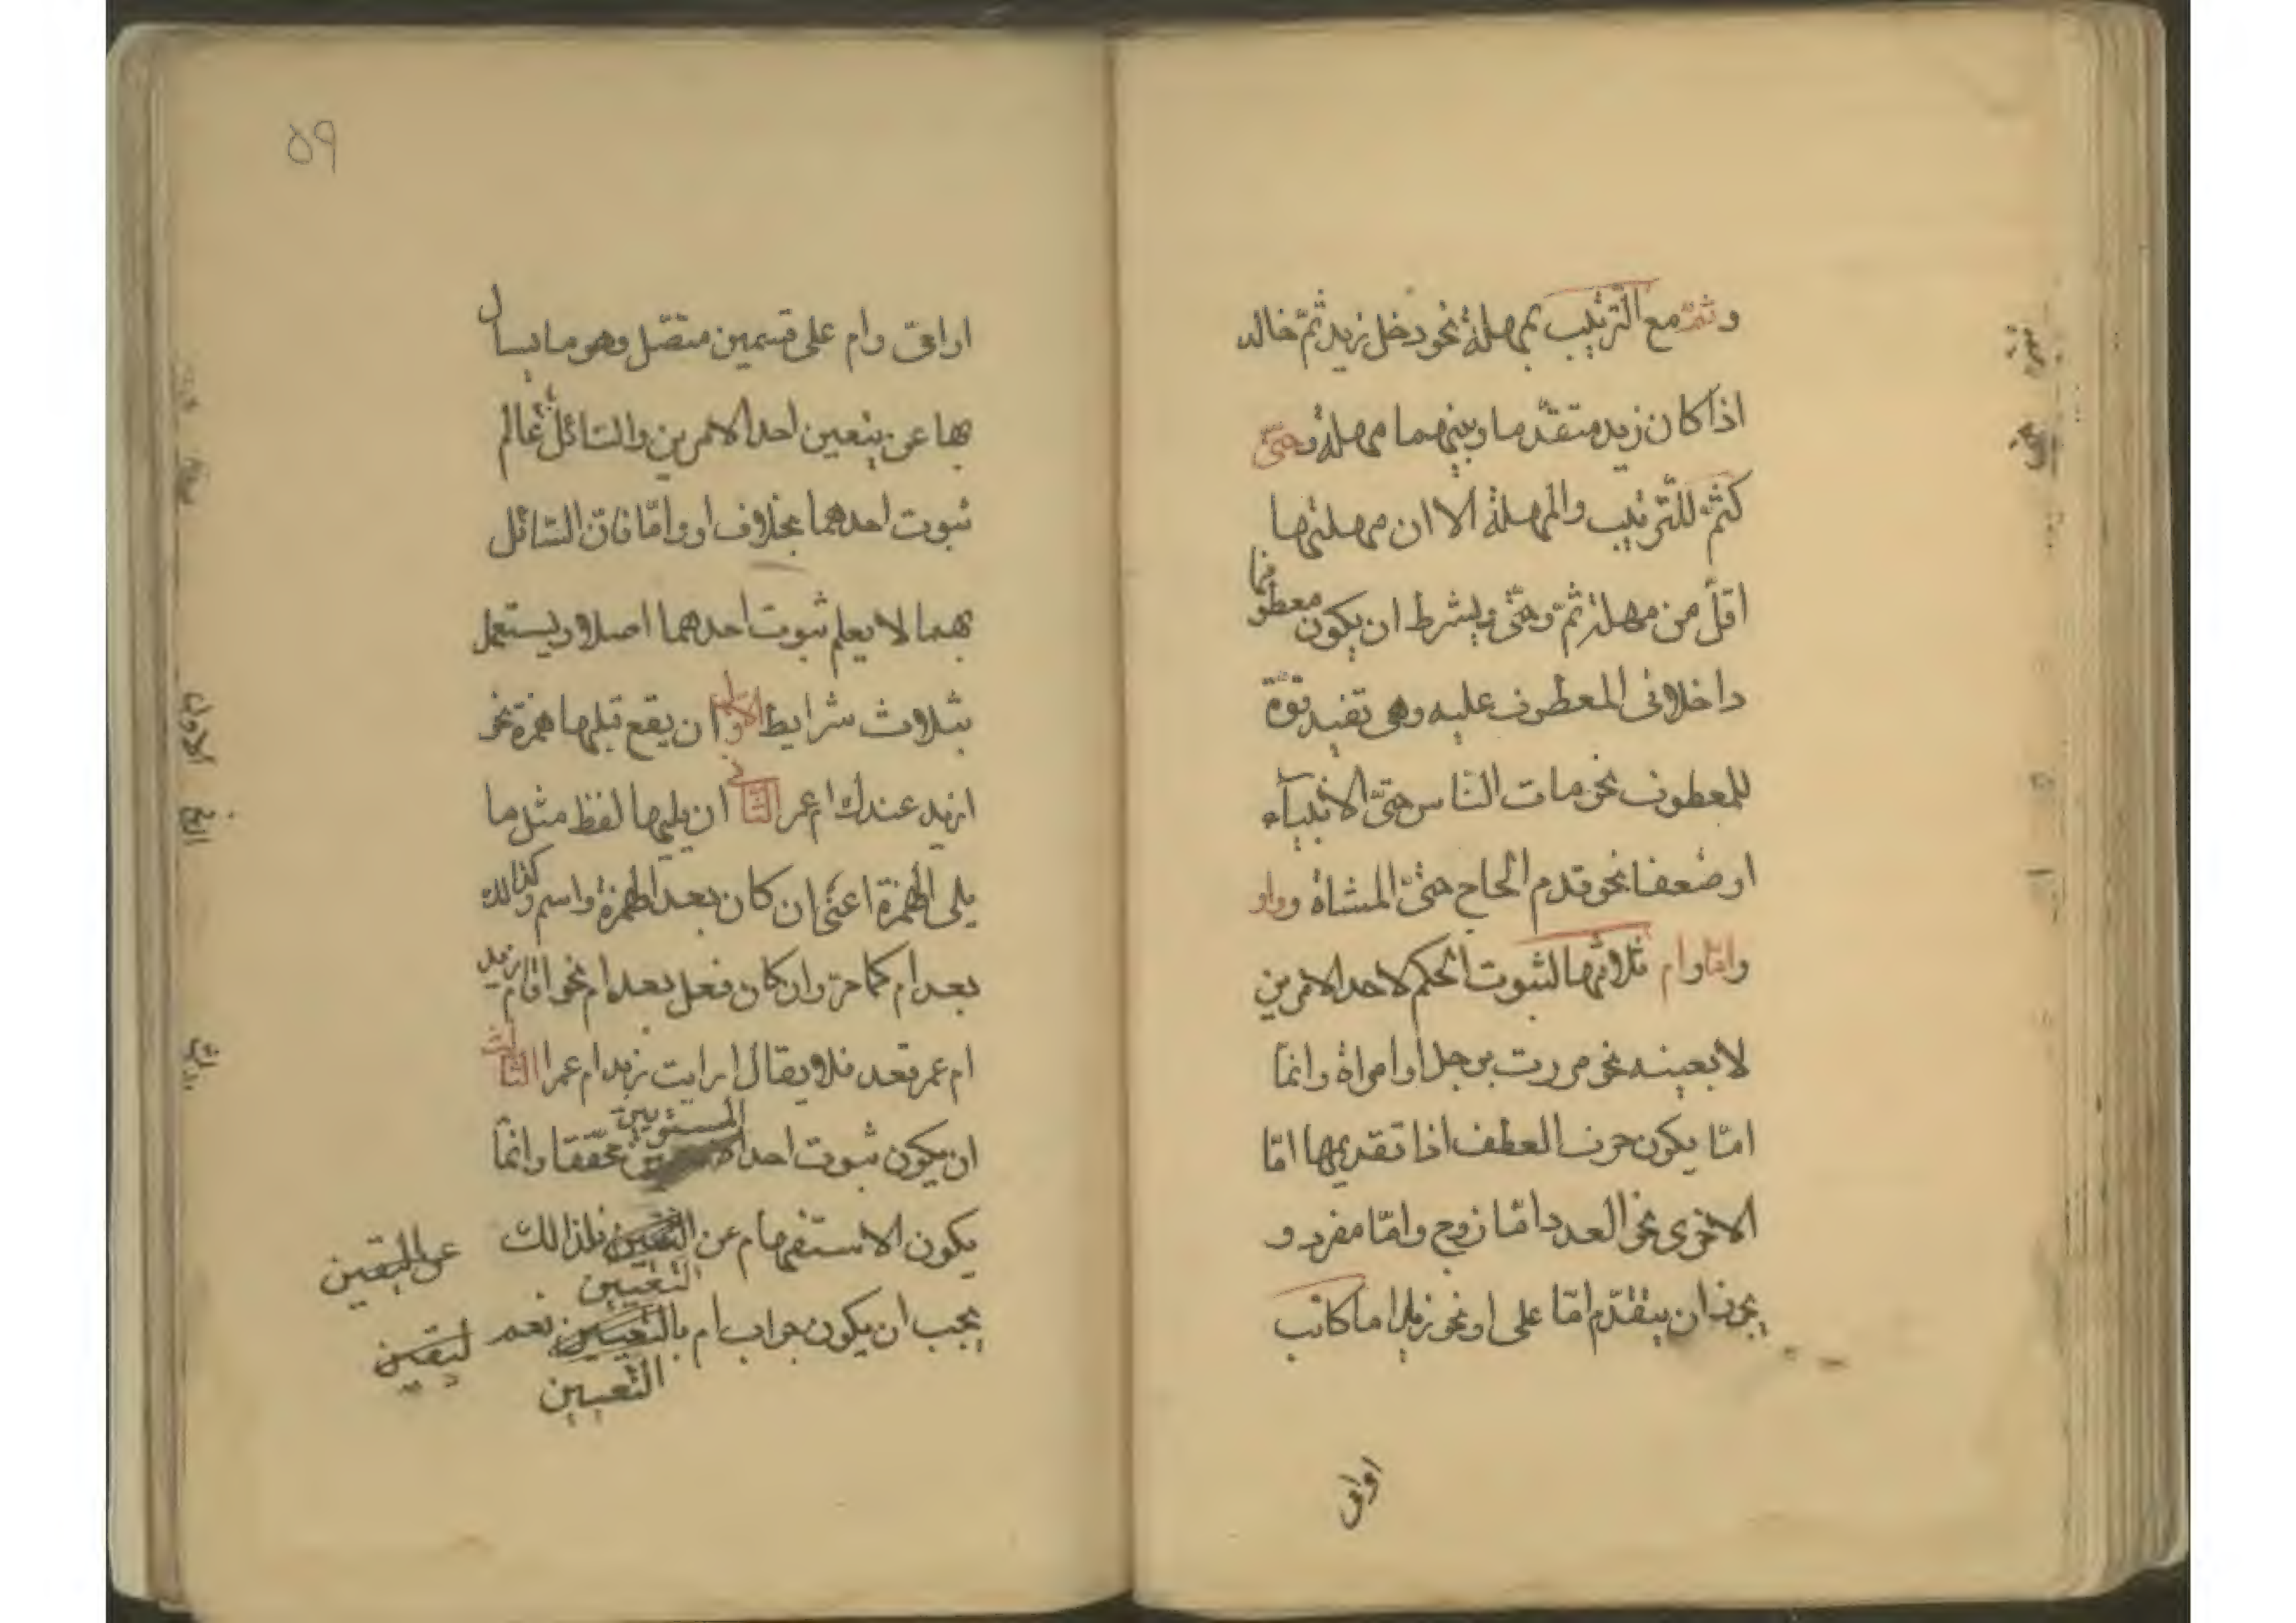 وثمّ مع الترتيب بمهلة نحو دخل زيد ثمّ خالد
اذا كان زيد متقدّما وبينهما مهلة وحتىّ
كثمّ للترتيب والمهلة الا ان مهلتها
اقلّ من مهلة ثمّ وحتىّ ويشرط ان يكون معطوفها
داخلا فى المعطوف عليه وهى تفيد قوّة
للمعطوف نحو مات النّاس حتىّ الانبيآء
او ضعفا نحو قدم الحاج حتىّ المشاة وواو
وامّا وام ثلاثتها لثبوت الحكم لاحد الامرين
لا بعينه نحو مررت برجل او امراة وانمّا
امّا يكون حرف العطف اذا تقديمها امّا
الاخرى نحو العدد امّا زوج وامّا مفرد و
يجوز ان يتقدّم امّا على او نحو زيد اما كاتب
او امى
٥٩
او امّى وام على قسمين متصّل وهو ما يسال
بها عن يتعين احد الامرين والسّائل عالم
ثبوت احدهما بخلاف او وامّا فانّ السّائل
بهما لا يعلم ثبوت احدهما اصلا ويستعمل
بثلاث شرايط الاوّل ان يقع قبلها همزة نحو
ازيد عندك ام عمر الثّانى ان يليها لفظ مثل ما
يلى الهمزة اعنى ان كان بعد الهمزة واسم وكذالك
بعد ام كما مرّ وان كان فعل بعد ام نحو اقام زيد
ام عمر قعد فلا يقال ارايت زيد ام عمرا الثّالث
ان يكون ثبوت احد المستويين محقّقا وانمّا
يكون الاستفهام عن التعيين فلذالك
التعيين
يجب ان يكون جواب ام بالتعيين نعم
التعيين